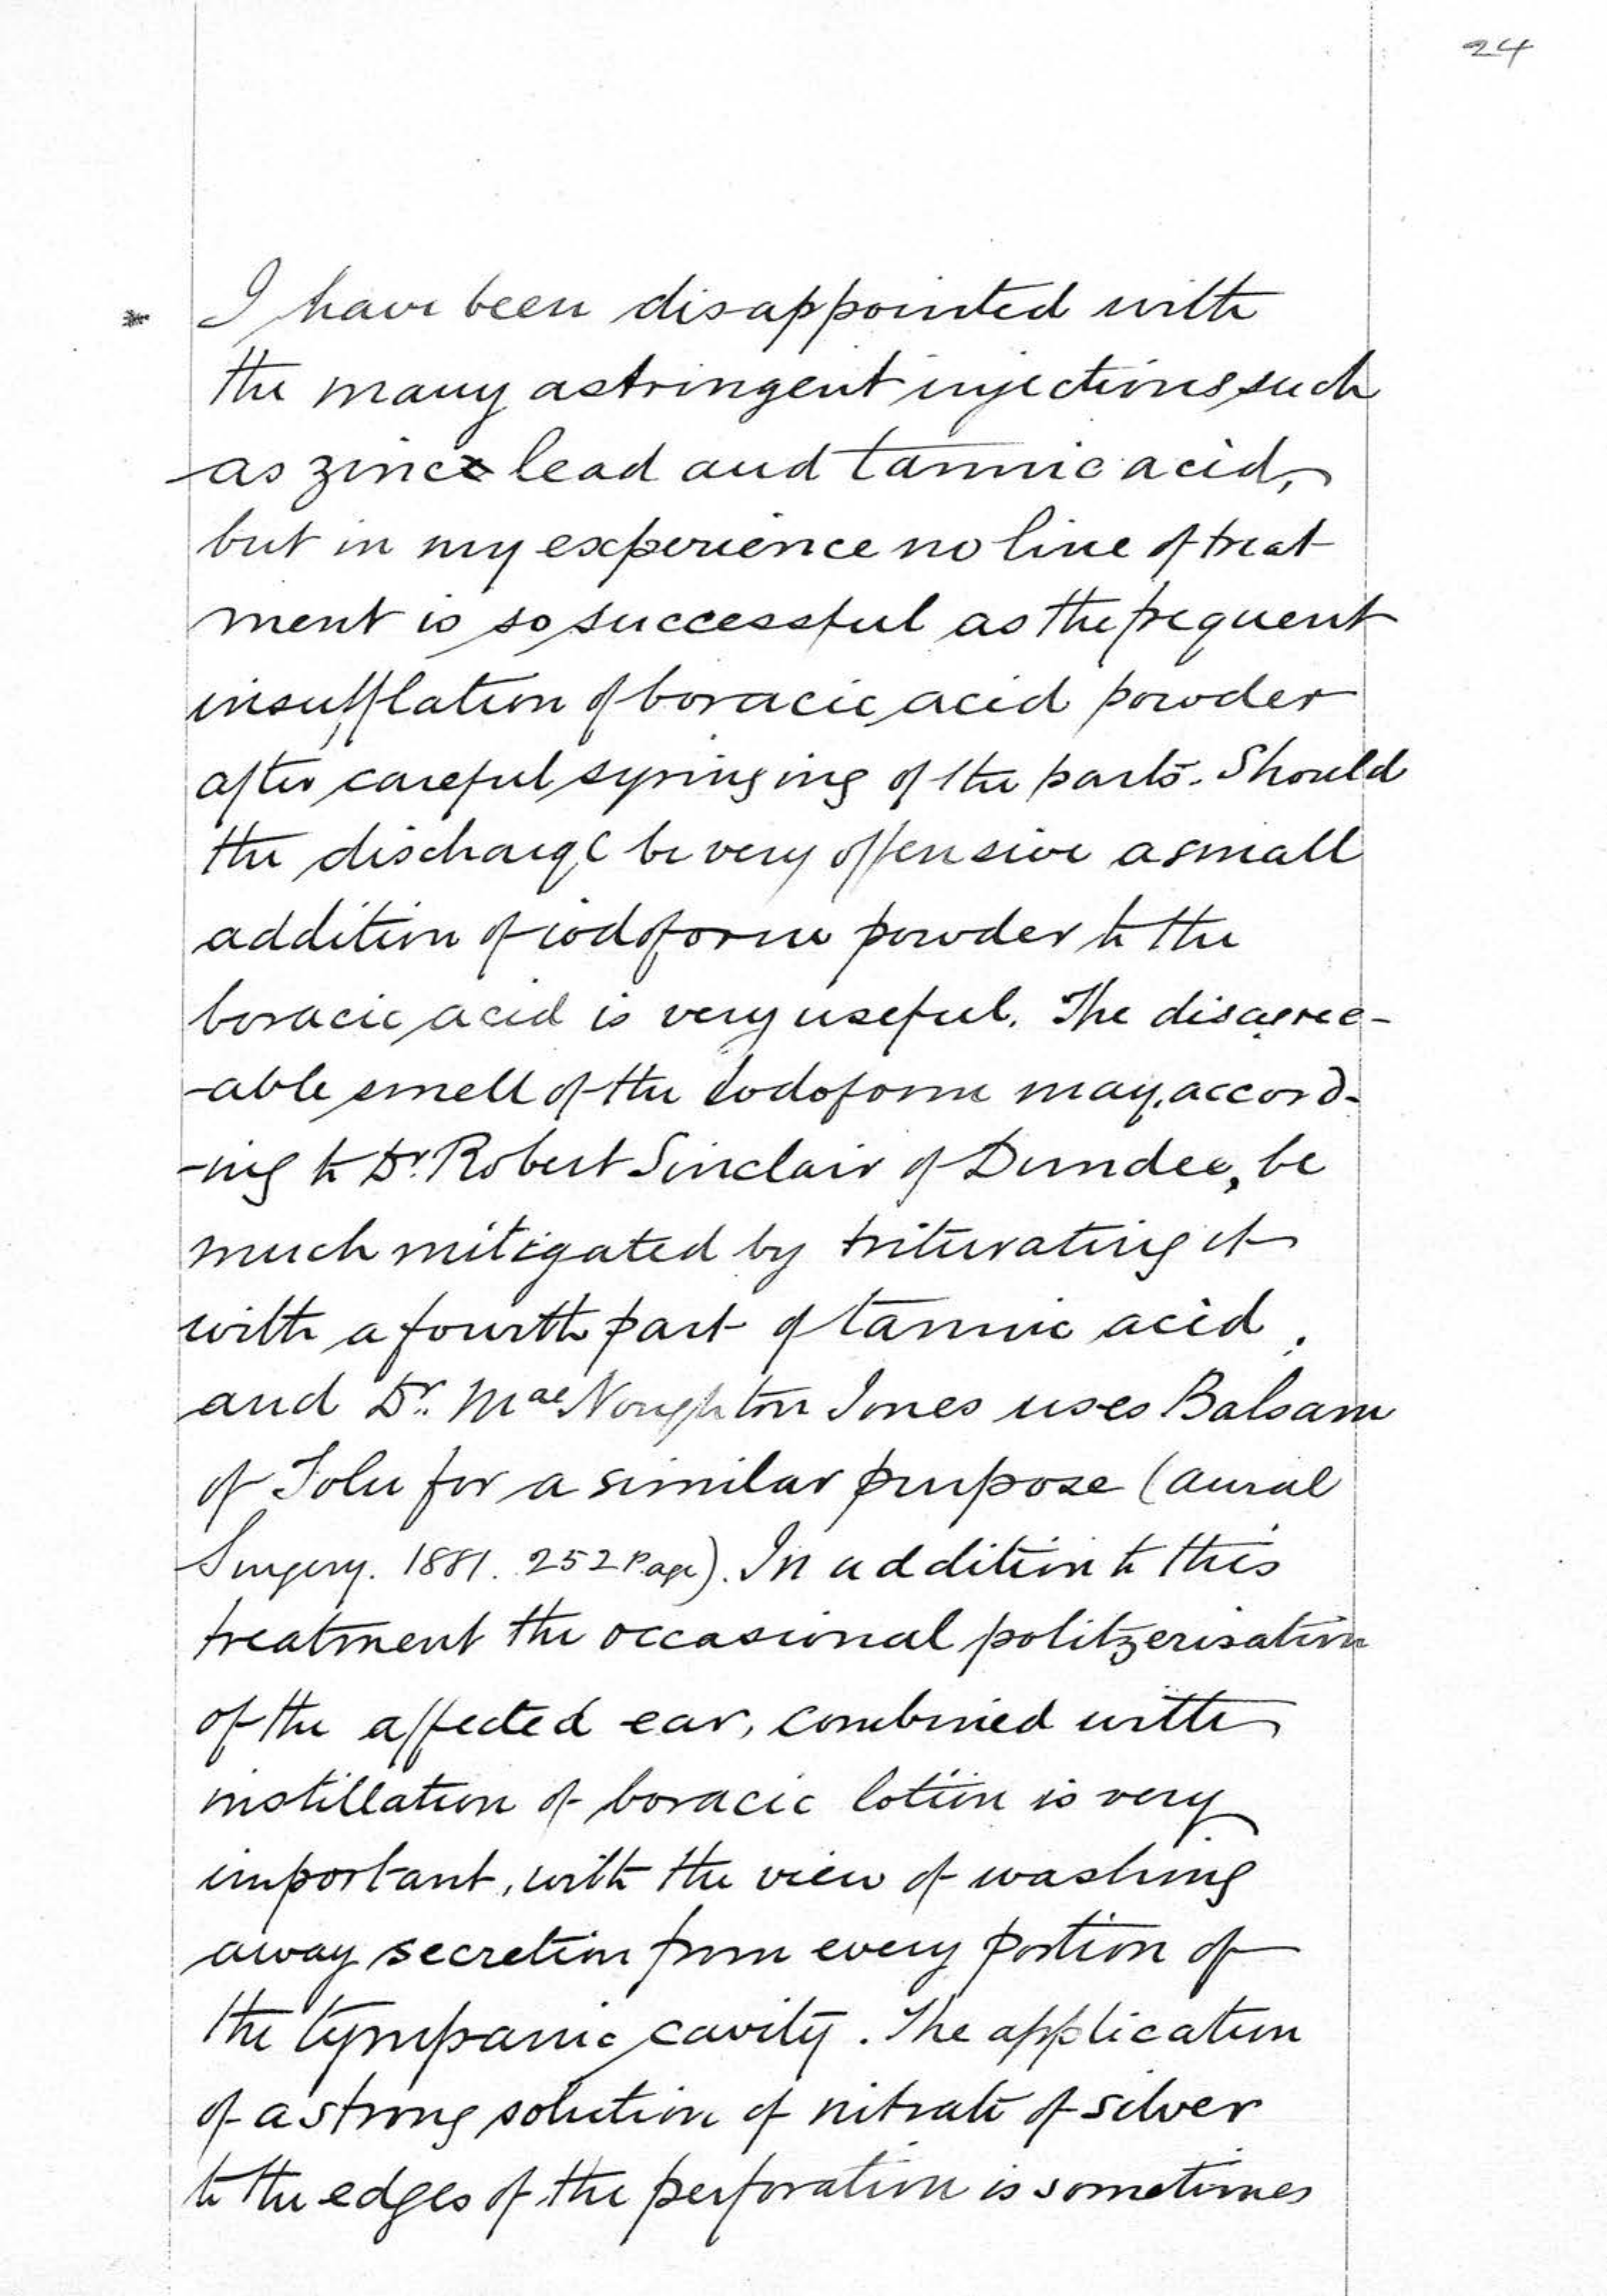 24
* I have been disappointed with
the many astringent injections such
as zinc lead and tannic acid,
but in my experience no line of treat
ment is so successful as the frequent
insufflation of boracic acid powder
after careful syringing of the parts. Should
the discharge be very offensive a small
addition of iodoform powder to the
boracic acid is very useful. The disagree-
-able smell of the iodoform may, accord-
-ing to Dr. Robert Sinclair of Dundee, be
much mitigated by triturating it
with a fourth part of tannic acid,
and Dr. Mac Noughton Jones uses Balsam
of Tolu for a similar purpose (Aural
Surgery. 1881. 252 Page). In addition to this
treatment the occasional politzerisation
of the affected ear, combined with
instillation of boracic lotion is very
important, with the view of washing
away secretion from every portion of
the tympanic cavity. The application
of a strong solution of nitrate of silver
to the edges of the perforation is sometimes